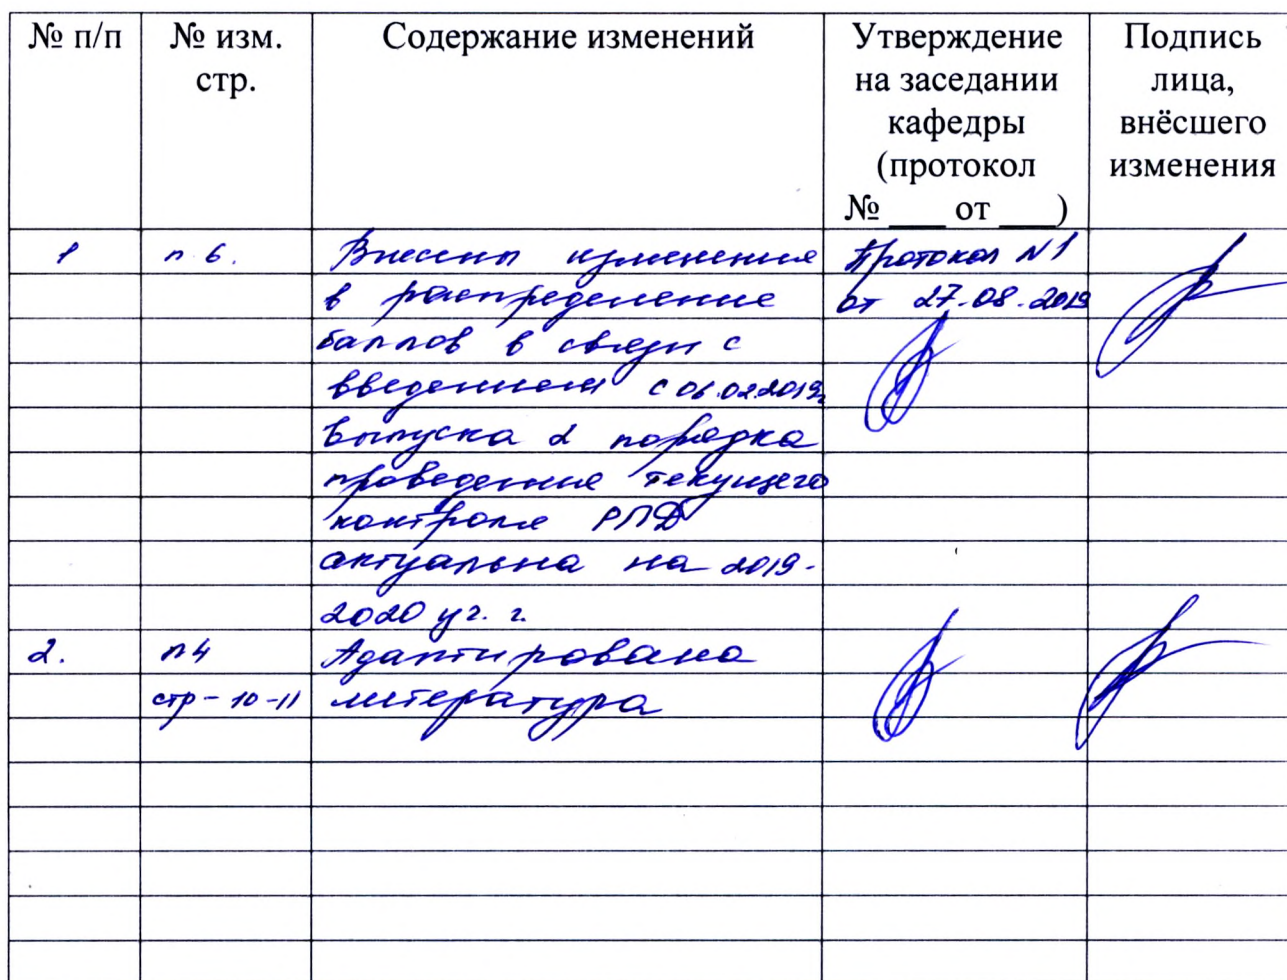 № п/п
№ изм.
стр.
Содержание изменений
Утверждение
на заседании
кафедры
(протокол
№ ____ от ____)
Подпись
лица,
внёсшего
изменения
1
п 6.
Внесены изменения
в распределение
баллов в связи с
введением с 06.02.2019г
выпуска 2 порядка
проведения текущего
контроля РПД
актуальна на 2019-
2020 уч. г.
Протокол N1
от 27.08.2019
2.
п4
стр-10-11
Адаптирована
литература